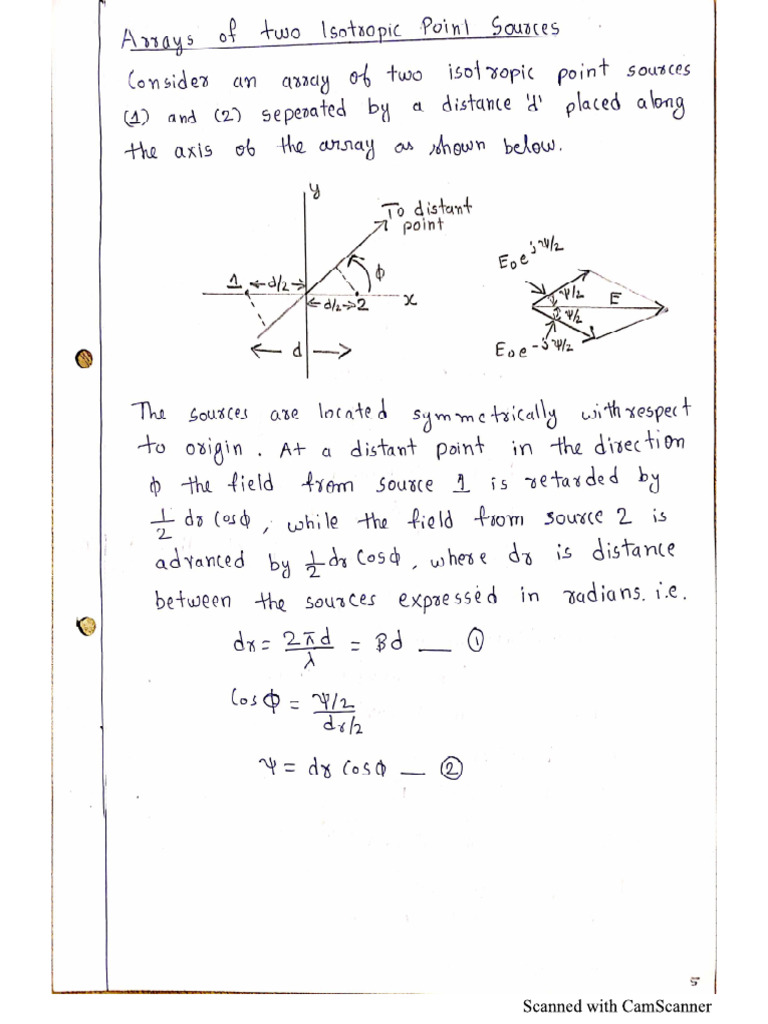 Arrays of two Isotropic Point Sources
Consider an array of two isotropic point sources
(1) and (2) seperated by a distance 'd' placed along
the axis of the array as shown below.
y
To distant
point
1 d/2
ϕ
d/2 2 x
d
E₀e^jψ/2
ψ/2 E
ψ/2
E₀e^-jψ/2
The sources are located symmetrically with respect
to origin. At a distant point in the direction
ϕ the field from source 1 is retarded by
1/2 dr Cosϕ, while the field from source 2 is
advanced by 1/2 dr Cosϕ, where dr is distance
between the sources expressed in radians. i.e.
dr = 2πd/λ = Bd — ①
Cosϕ = ψ/2 / dr/2
ψ = dr Cosϕ — ②
5
Scanned with CamScanner